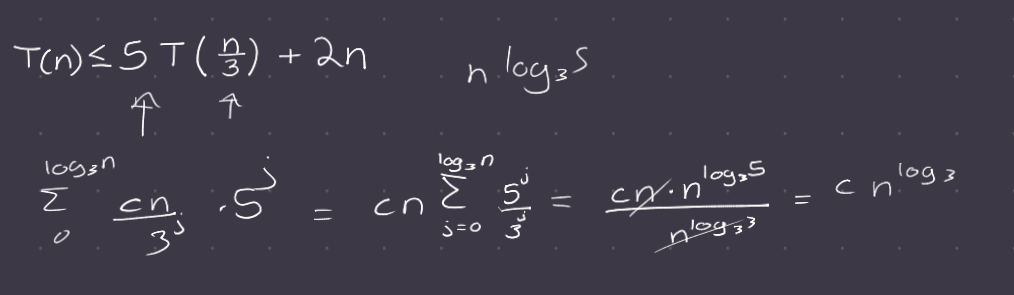 T(n) ≤ 5 T(n/3) + 2n    n^log₃5
↑ ↑
∑_0^{log₃n} cn/3^j · 5^j = cn ∑_{j=0}^{log₃n} 5^j/3^j = cn · n^{log₃5} / n^{log₃3} = c n^{log₃}